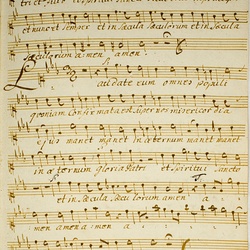 et nunc et semper et in sæcula sæculorum et in sæcula
sæculorum amen amen
Laudate eum omnes populi
quoniam confirmata est super nos misericordia
ejus manet manet in æternum manet manet
in æternum gloria Patri et Spiritui Sancto
et in sæcula sæculorum amen a
men amen a men a